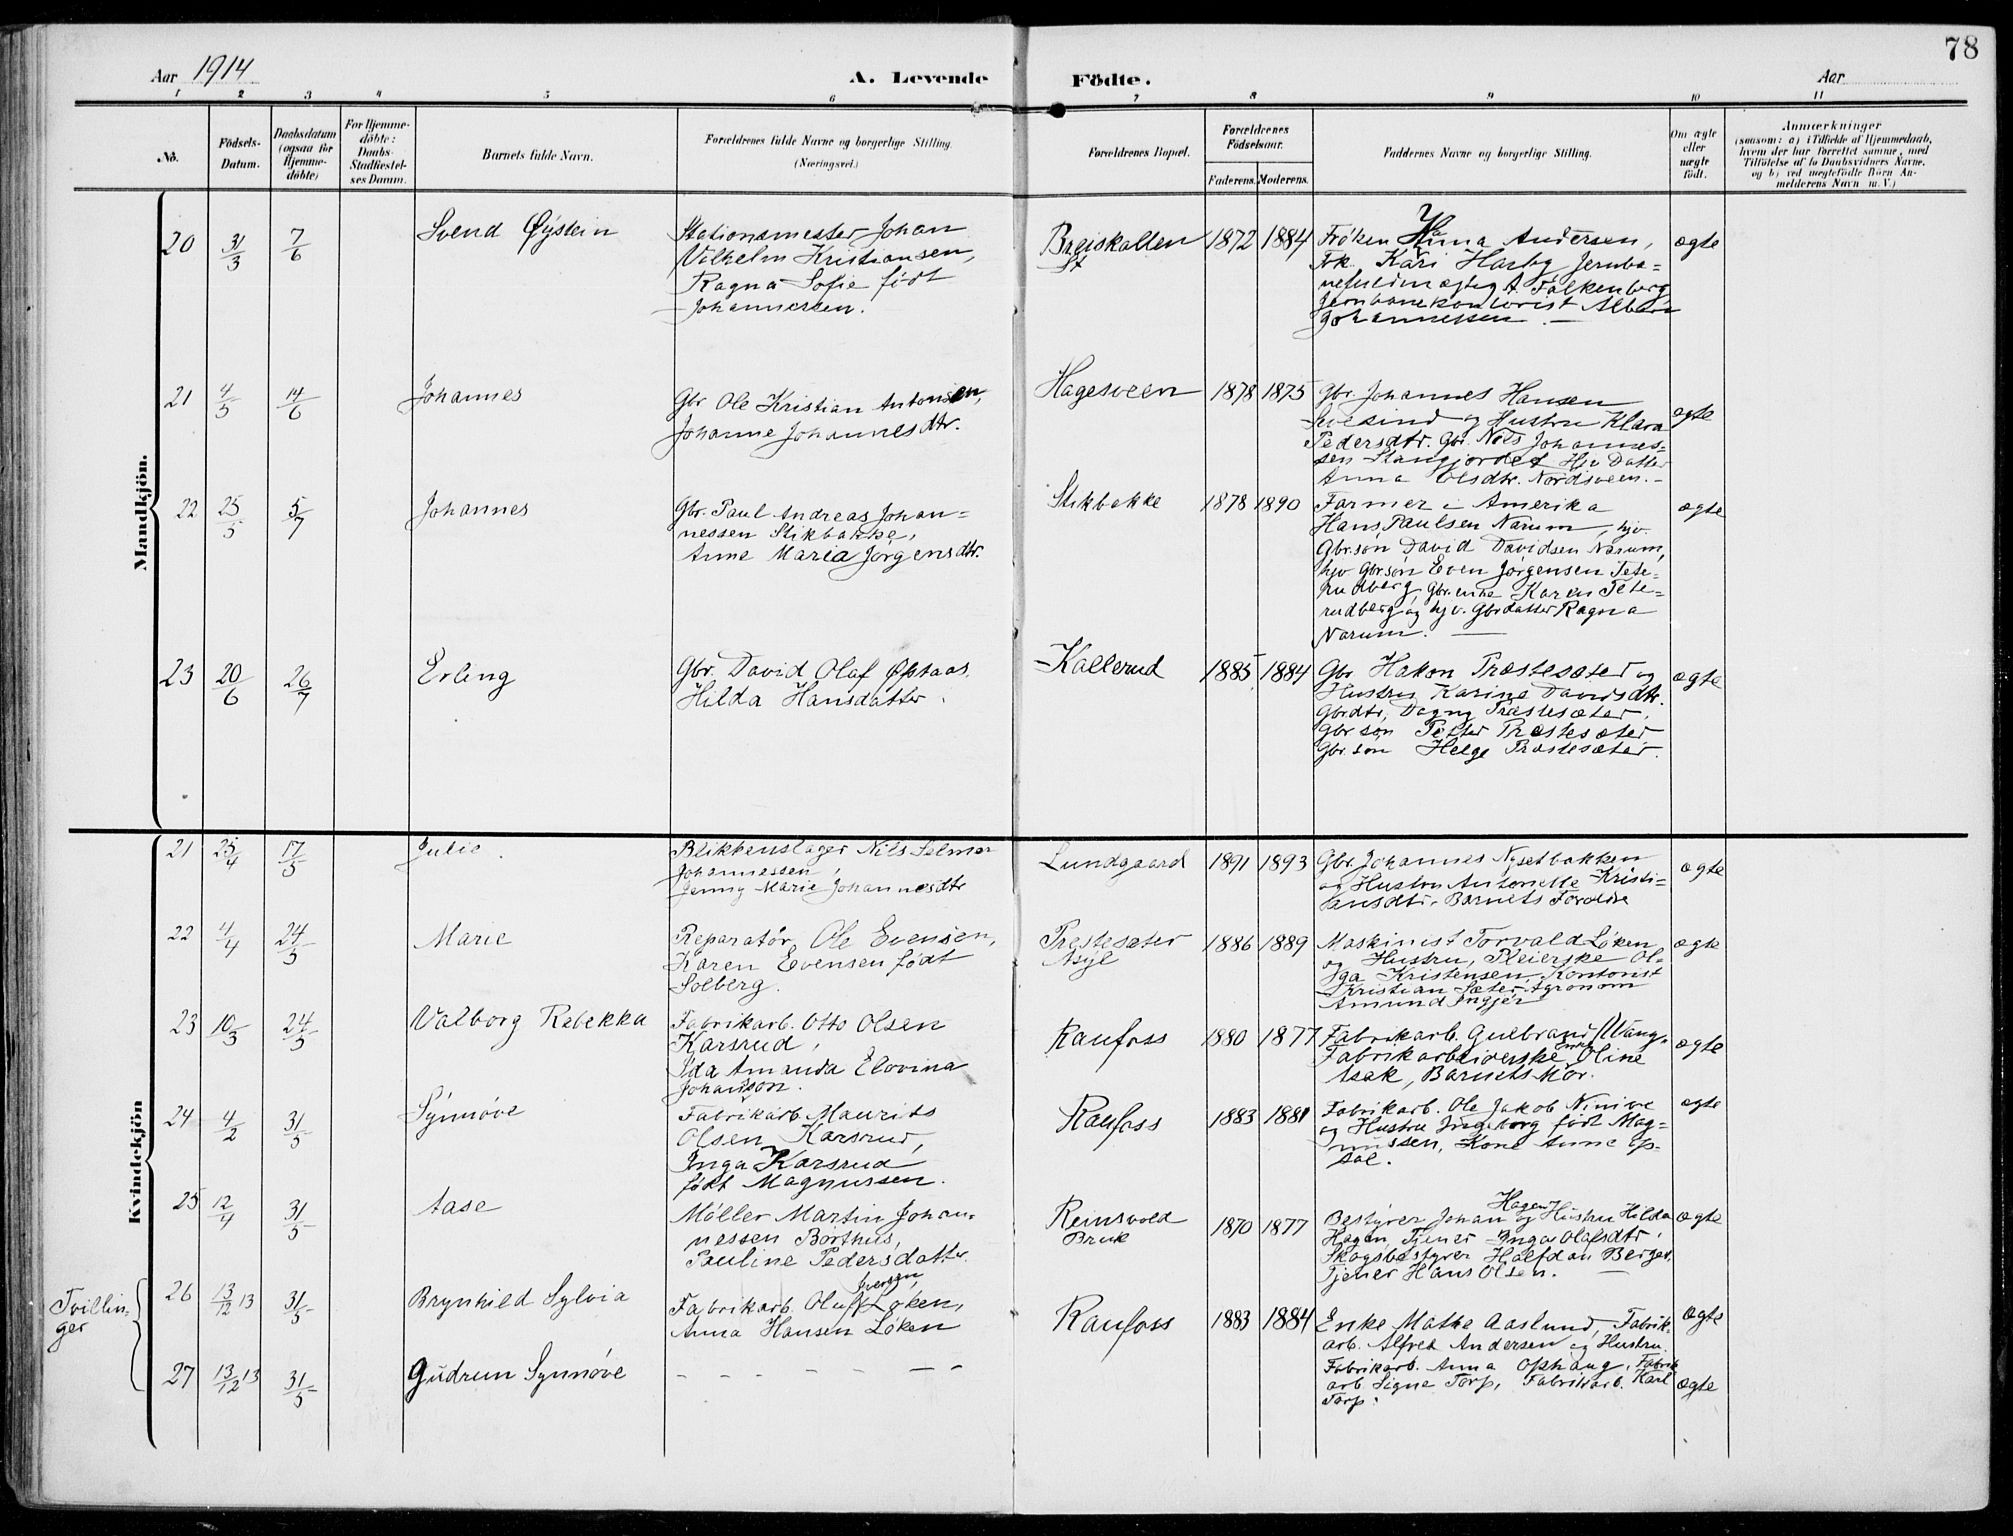 78
Aar 1914
A. Levende Födte.
Aar
1 2 3 4 5 6 7 8 9 10 11
No.
Födsels-
Datum.
Daabsdatum
(ogsaa for
Hjemme-
döbte)
For Hjemme-
döbte:
Daabs-
Stadfæstel-
ses Datum.
Barnets fulde Navn.
Forældrenes fulde Navne og borgerlige Stilling.
(Næringsvei.)
Forældrenes Bopæl.
Forældrenes
Födselsaar.
Faderens. Moderens.
Faddernes Navne og borgerlige Stilling.
Om ægte
eller
uægte
födt.
Anmærkninger
(saasom: a) i Tilfælde af Hjemmedaab,
hvem der har forrettet samme, med
Tilföielse af to Daabsvidners Navne,
og b) ved uægtefödte Börn An-
melderens Navn m. V.)
Mandkjön.
20 31/3 7/6 Svend Øystein
Stationsmester Johan
Vilhelm Kristiansen,
Ragna Sofie født
Johannessen.
Breiskallen
St
1872 1884
Frøken Anna Andersen,
Frk. Kari Hasby Jernba-
nefuldmægtig A. Falkenberg
Jernbanekontorist Albert
Johannessen. —
ægte
21 4/5 14/6 Johannes
Gbr Ole Kristian Antonsen,
Johanne Johannesdtr.
Hagesveen 1878 1875
Gbr. Johannes Hansen
og Hustru Klara
Pedersdtr. Gbr. Nils Johannes-
sen Stangjordet Hjv Datter
Anna Olsdtr. Nordsveen. -
ægte
22 25/5 5/7 Johannes
Gbr. Paul Andreas Johan-
nessen Stikbakke,
Anne Maria Jørgensdtr.
Stikbakke 1878 1890
Farmer i Amerika
Hans Paulsen Narum, hjv.
Gbr.søn David Davidsen Narum,
hjv Gbr.søn Even Jørgensen Tete-
rudberg, Gbr.enke Karen Tete-
rudberg og hjv. Gbrdatter Ragna
Narum. —
ægte
23 20/6 26/7 Erling
Gbr. David Olaf Øfstaas.
Hilda Hansdatter.
Kallerud 1885 1884
Gbr Hakon Præstesæter og
Hustru Karine Davidsdtr.
Gbrdtr. Dagny Præstesæter.
Gbr søn Petter Præstesæter
Gbr. søn Helge Præstesæter.
ægte
Kvindekjön
21 25/4 17/5 Julie.
Blikkenslager Nils Selmer
Johannessen,
Jenny Marie Johannesdtr
Lundgaard 1891 1893
Gbr. Johannes Nysetbakken
og Hustru Antonette Kristi-
ansdtr. Barnets Forældre
ægte
22 4/4 24/5 Marie
Reparatør Ole Evensen,
Karen Evensen født
Solberg.
Prestesæter
Asyl
1886 1889
Maskinist Torvald Løken
og Hustru, Pleierske Ol-
ga Kristensen, Kontorist
Kristian Sæter, Agronom
Amund Ingjer
ægte
23 10/3 24/5 Valborg Rebekka
Fabrikarb. Otto Olsen
Karsrud,
Ida Amanda Elovina
Johanson.
Raufoss 1880 1877
Fabrikarb. Gulbrand Wang.
Fabrikarbeiderske Oline
Asak, Barnets Mor.
ægte
24 4/2 31/5 Synnøve
Fabrikarb. Maurits
Olsen Karsrud,
Inga Karsrud
født Magnussen.
Raufoss 1883 1881
Fabrikarb. Ole Jakob Ninive
og Hustru Ingeborg født Mag-
nussen, Kone Anne Op-
sal.
ægte
25 12/4 31/5 Aase
Møller Martin Johan-
nessen Borthus,
Pauline Pedersdatter.
Reinsvold
Bruk
1870 1877
Bestyrer Johan Hagen og Hustru Hilda
Hagen, Tjener Inga Olafsdtr,
Skogsbestyrer Halfdan Berger,
Tjener Hans Olsen. —
ægte
Tvillin-
ger
26 13/12 13 31/5 Brynhild Sylvia
Fabrikarb. Oluf Iversen Løken,
Anna Hansen Løken
Raufoss 1883 1884
Enke Mathe Aaslund, Fabrik-
arb. Alfred Andersen og Hustru.
Fabrikarb. Anna Ophaug, Fabrik
arb. Signe Torp, Fabrikarb. Karl
Torp.
ægte
27 13/12 13 31/5 Gudrun Synnøve
- - - - - -
ægte